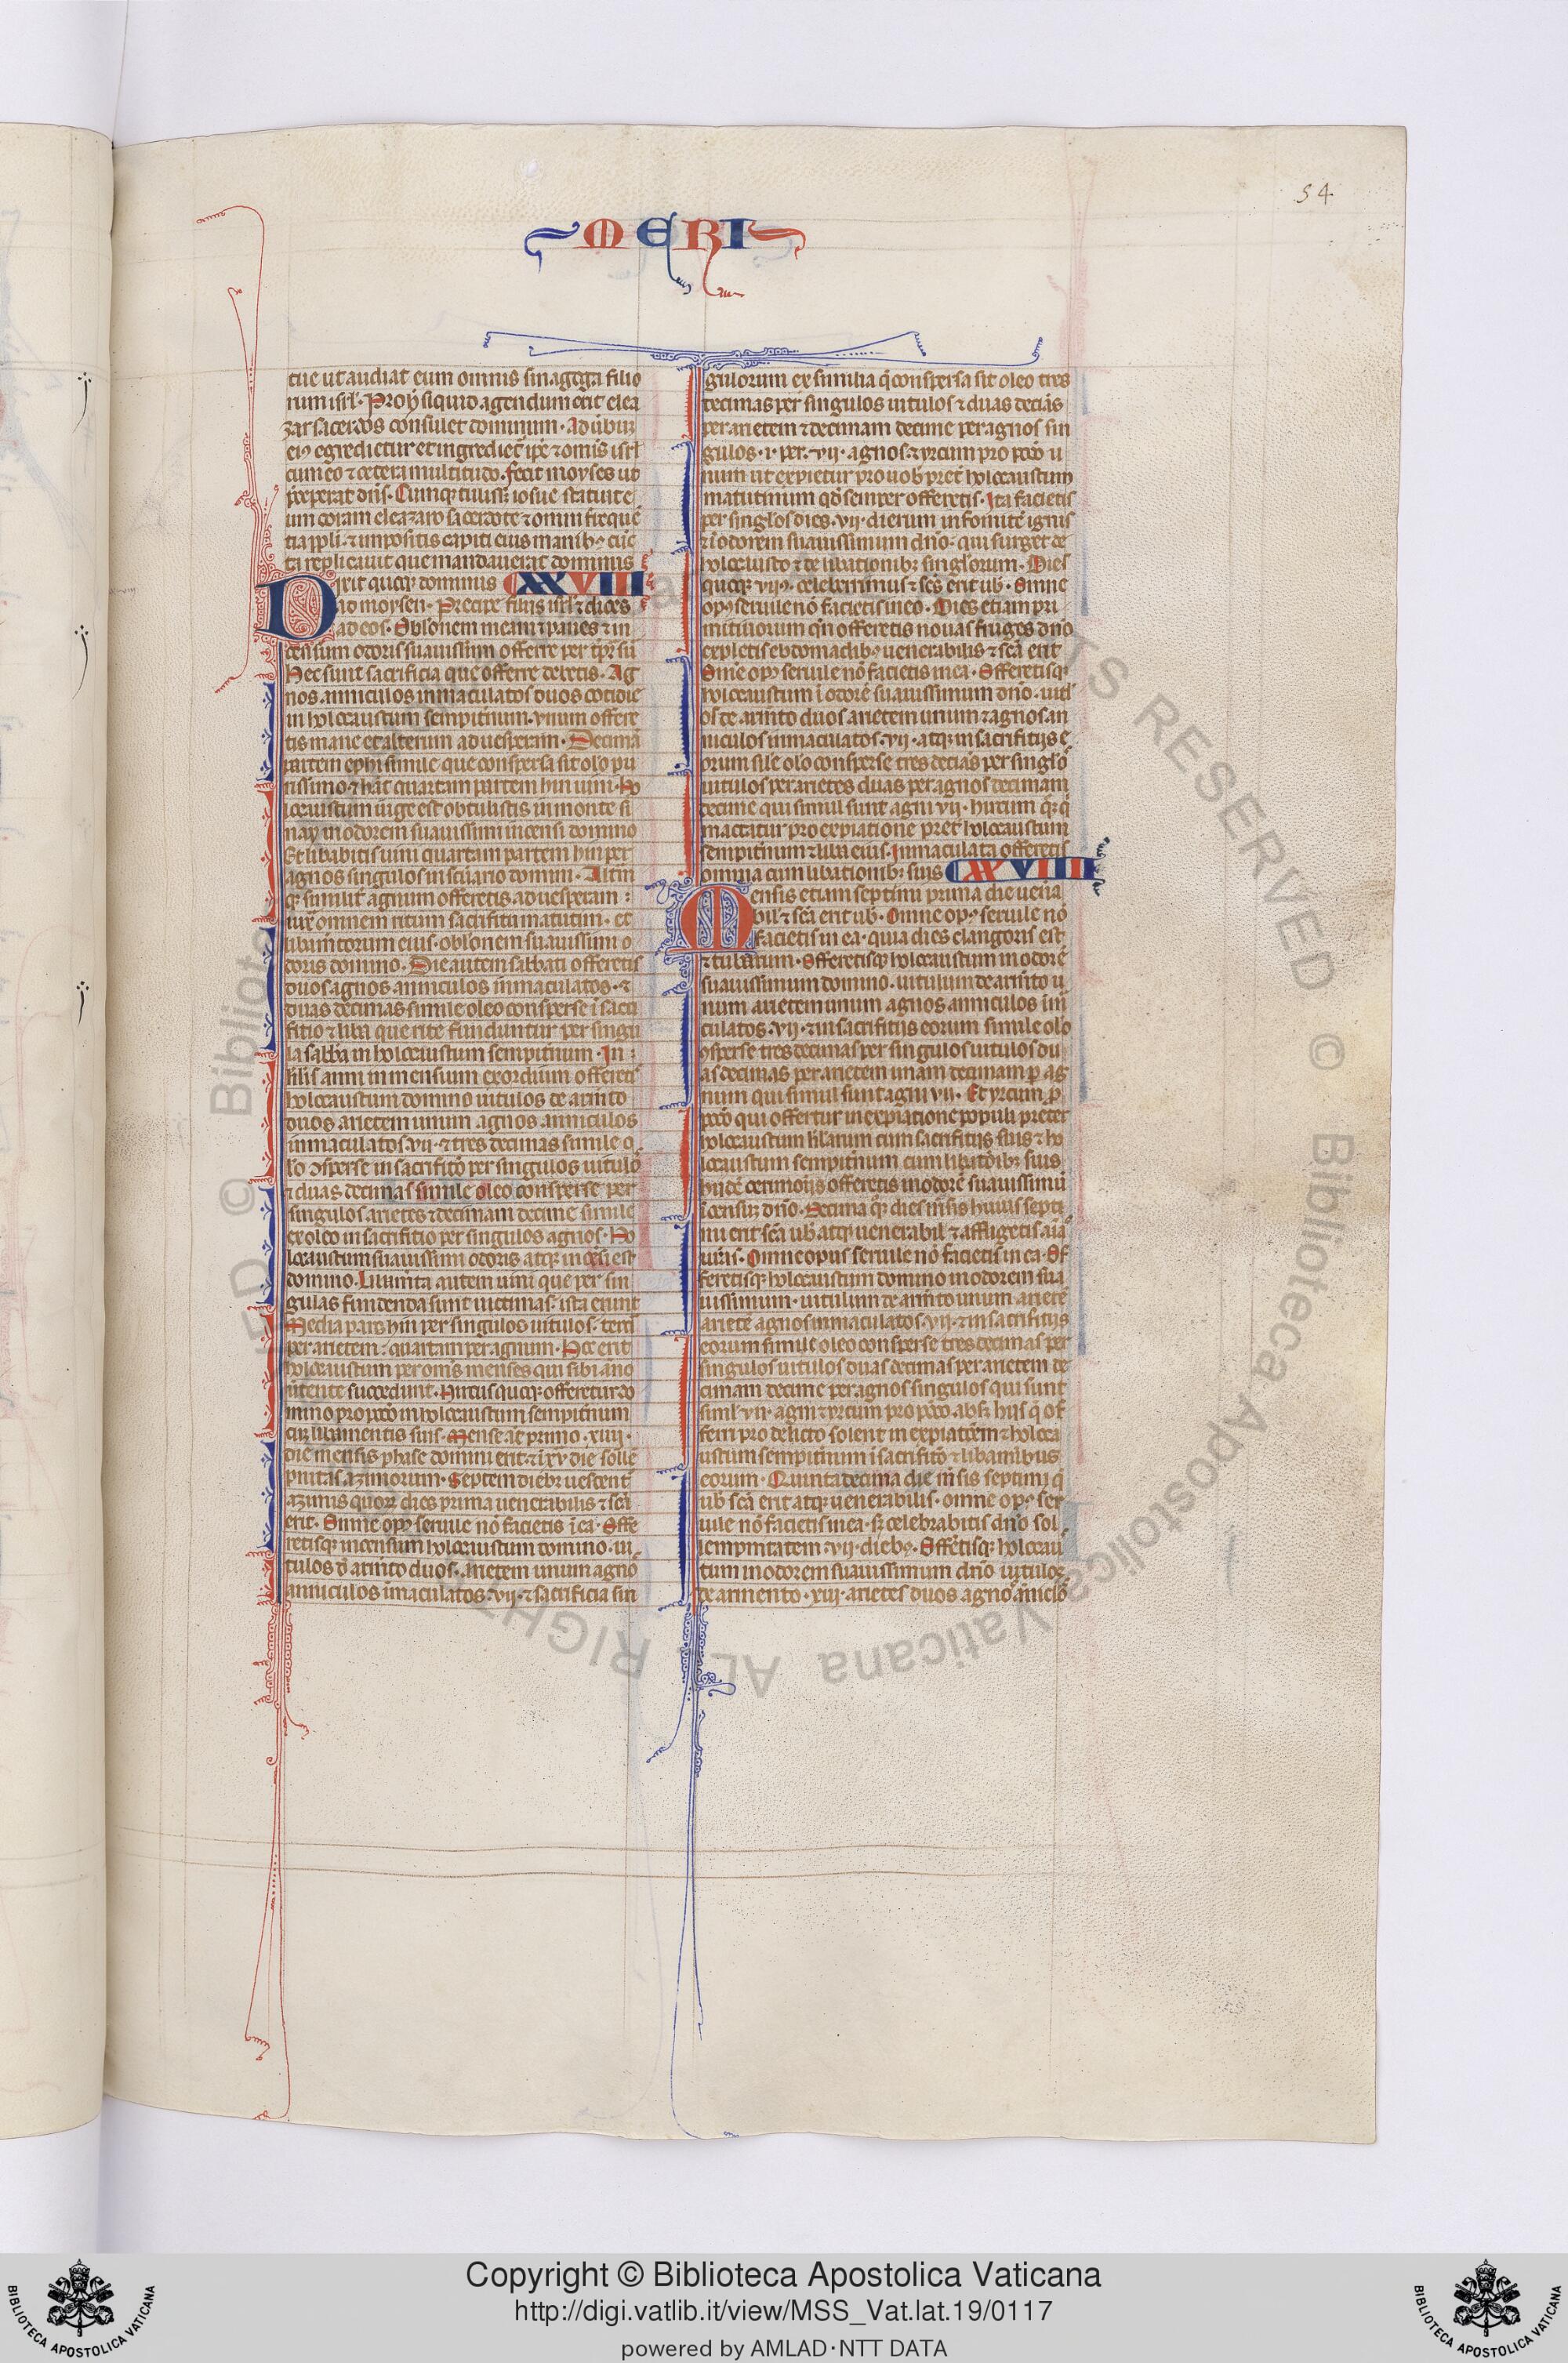 54
MERI
tue ut audiat eum omnis sinagoga filio
rum isrl. Pro hoc siquid agendum erit elea
zar sacerdos consulet dominum. Ad ubum
eiꝰ egredietur et ingrediet ipe ⁊ omis isrl
cum eo ⁊ cetera multitudo. Fecit moyses ut
p̄ceperat dns. Cumqꝫ tulissꝫ iosue statuit e
um coram eleazaro sacerdote ⁊ omni freque
tia ppli. ⁊ impositis capiti eius manibꝰ cūc
ta replicauit que mandauerat dominus
Dixit quoqꝫ dominus XXVIII
ad moysen. Precipe filiis isrl ⁊ dices
ad eos. Oblonem meam ⁊ panes ⁊ in
censum odoris suauissimi offerte per tpr̄ sū
Hec sunt sacrificia que offerre debetis. Ag
nos anniculos inmaculatos duos cotidie
in holocaustum sempitnum. vnum offere
tis mane et alterum ad uesperam. Decimā
partem ephi simile que conspersa sit olo pu
rissimo. ⁊ hat quartam partem hin uini. Ho
locaustum iuge est obtulistis in monte si
nay in odorem suauissimi incensi domino
Et libabitis uini quartam partem hin per
agnos singulos in scuario domini. Altm̄
qꝫ similit agnum offeretis ad uesperam
iux omnem ritum sacrificii matutini. et
libamtorum eius. oblonem suauissimi o
doris domino. Die autem sabbati offeretis
duos agnos anniculos inmaculatos. ⁊
duas decimas simile oleo consperse ī sacri
fitio ⁊ liba que rite funduntur per singu
la sabba in holocaustum sempitnum. In
kalis anni in mensium exordium offeretis
holocaustum domino uitulos de armto
duos arietem unum agnos anniculos
inmaculatos. vii. ⁊ tres decimas simile o
lo ꝯsperse in sacrificio per singulos uitulos
⁊ duas decimas simile oleo consperse per
singulos arietes ⁊ decimam decime simile
ex oleo in sacrifitio per singulos agnos. Ho
locaustum suauissimi odoris atqꝫ incensi est
domino. Libamta autem uini que per sin
gulas fundenda sunt uictimas. ista erunt
Media pars hin per singulos uitulos. terci
per arietem. quartam per agnum. Hoc erit
holocaustum per omis menses qui sibi anno
uertente succedunt. Hircus quoqꝫ offeretur do
mino pro pccō in holocaustum sempitnum
cum libamentis suis. Mense at primo. xiiii.
die mensis phase domini erit. ⁊ ī xv die solle
pnitas azimorum. Septem diebꝫ uescent
azimis quorum dies prima uenerabilis ⁊ scā
erit. Omne opꝰ seruile nō facietis ī ea. Offe
retisqꝫ incensum holocaustum domino. ui
tulos d armto duos. Arietem unum agnos
anniculos īmaculatos. vii. ⁊ sacrificia sin
gulorum ex similia q̄ conspersa sit oleo tres
decimas per singulos uitulos ⁊ duas decias
per arietem ⁊ decimam decime per agnos sin
gulos. i. per. vii. agnos. ⁊ yrcum pro pccō u
num ut expietur pro uob pret holocaustum
matutinum qd semper offeretis. Ita facietis
per singlos dies. vii. dierum in fomite ignis
⁊ ī odorem suauissimum dno. qui surget de
holocausto ⁊ de libationibꝫ singlorum. Dies
quoqꝫ viiꝰ. celeberrimus ⁊ scs erit ub. Omne
opꝰ seruile nō facietis in eo. Dies etiam pri
mitiuorum qn offeretis nouas fruges dno
expletis ebdomadibꝰ uenerabilis ⁊ scā erit
Omē opꝰ seruile nō facietis in ea. Offeretisqꝫ
holocaustum ī odore suauissimum dno. uitl
os de armto duos arietem unum ⁊ agnos an
niculos inmaculatos. vii. atqꝫ in sacrifitiis e
orum sile olo consperse tres decias per singlos
uitulos per arietes duas per agnos decimam
decime qui simul sunt agni vii. hircum qꝫ q
mactatur pro expiatione pret holocaustum
sempitnum ⁊ liba eius. Inmaculata offeretis
omnia cum libationibꝫ suis XXVIIII
Mensis etiam septimi prima die uena
bil ⁊ scā erit ub. Omne opꝰ seruile nō
facietis in ea. quia dies clangoris est
⁊ tubarum. Offeretisqꝫ holocaustum in odore
suauissimum domino. uitulum de armto u
num arietem unum agnos anniculos inm
culatos. vii. ⁊ in sacrifitiis eorum simile olo
ꝯsperse tres decimas per singulos uitulos du
as decimas per arietem unam decimam p ag
num qui simul sunt agni vii. Et yrcum p
pccō qui offertur in expiatione populi preter
holocaustum kalarum cum sacrifitiis suis ⁊ ho
locaustum sempitnum cum libatoibꝫ suis
hiisdē cerimoniis offeretis in odore suauissimū
īcensum dno. Decima qꝫ dies msis huius septi
mi erit scā ub atqꝫ uenerabil ⁊ affligetis aīā
uras. Omne opus seruile nō facietis in ea. Of
feretisqꝫ holocaustum domino in odorem sua
uissimum. uitulum de armto unum arietē
arietē agnos inmaculatos. vii. ⁊ in sacrifitiis
eorum simile oleo consperse tres decimas per
singulos uitulos duas decimas per arietem de
cimam decime per agnos singulos qui sunt
siml. vii. agni ⁊ yrcum pro pccō absqꝫ hiis q of
ferri pro delicto solent in expiatoem ⁊ holoca
ustum sempitnum ī sacrifitō ⁊ libamibus
eorum. Quinta decima die msis septimi q̄
ub scā erit atqꝫ uenerabilis. omne opꝰ ser
uile nō facietis in ea. sꝫ celebrabitis dno sol
lempnitatem. vii. diebꝰ. Offetisqꝫ holocau
tum in odorem suauissimum dno uitulos
de armento. xiii. arietes duos agnos anniclos
Copyright © Biblioteca Apostolica Vaticana
http://digi.vatlib.it/view/MSS_Vat.lat.19/0117
powered by AMLAD·NTT DATA
BIBLIOTECA APOSTOLICA VATICANA
BIBLIOTECA APOSTOLICA VATICANA